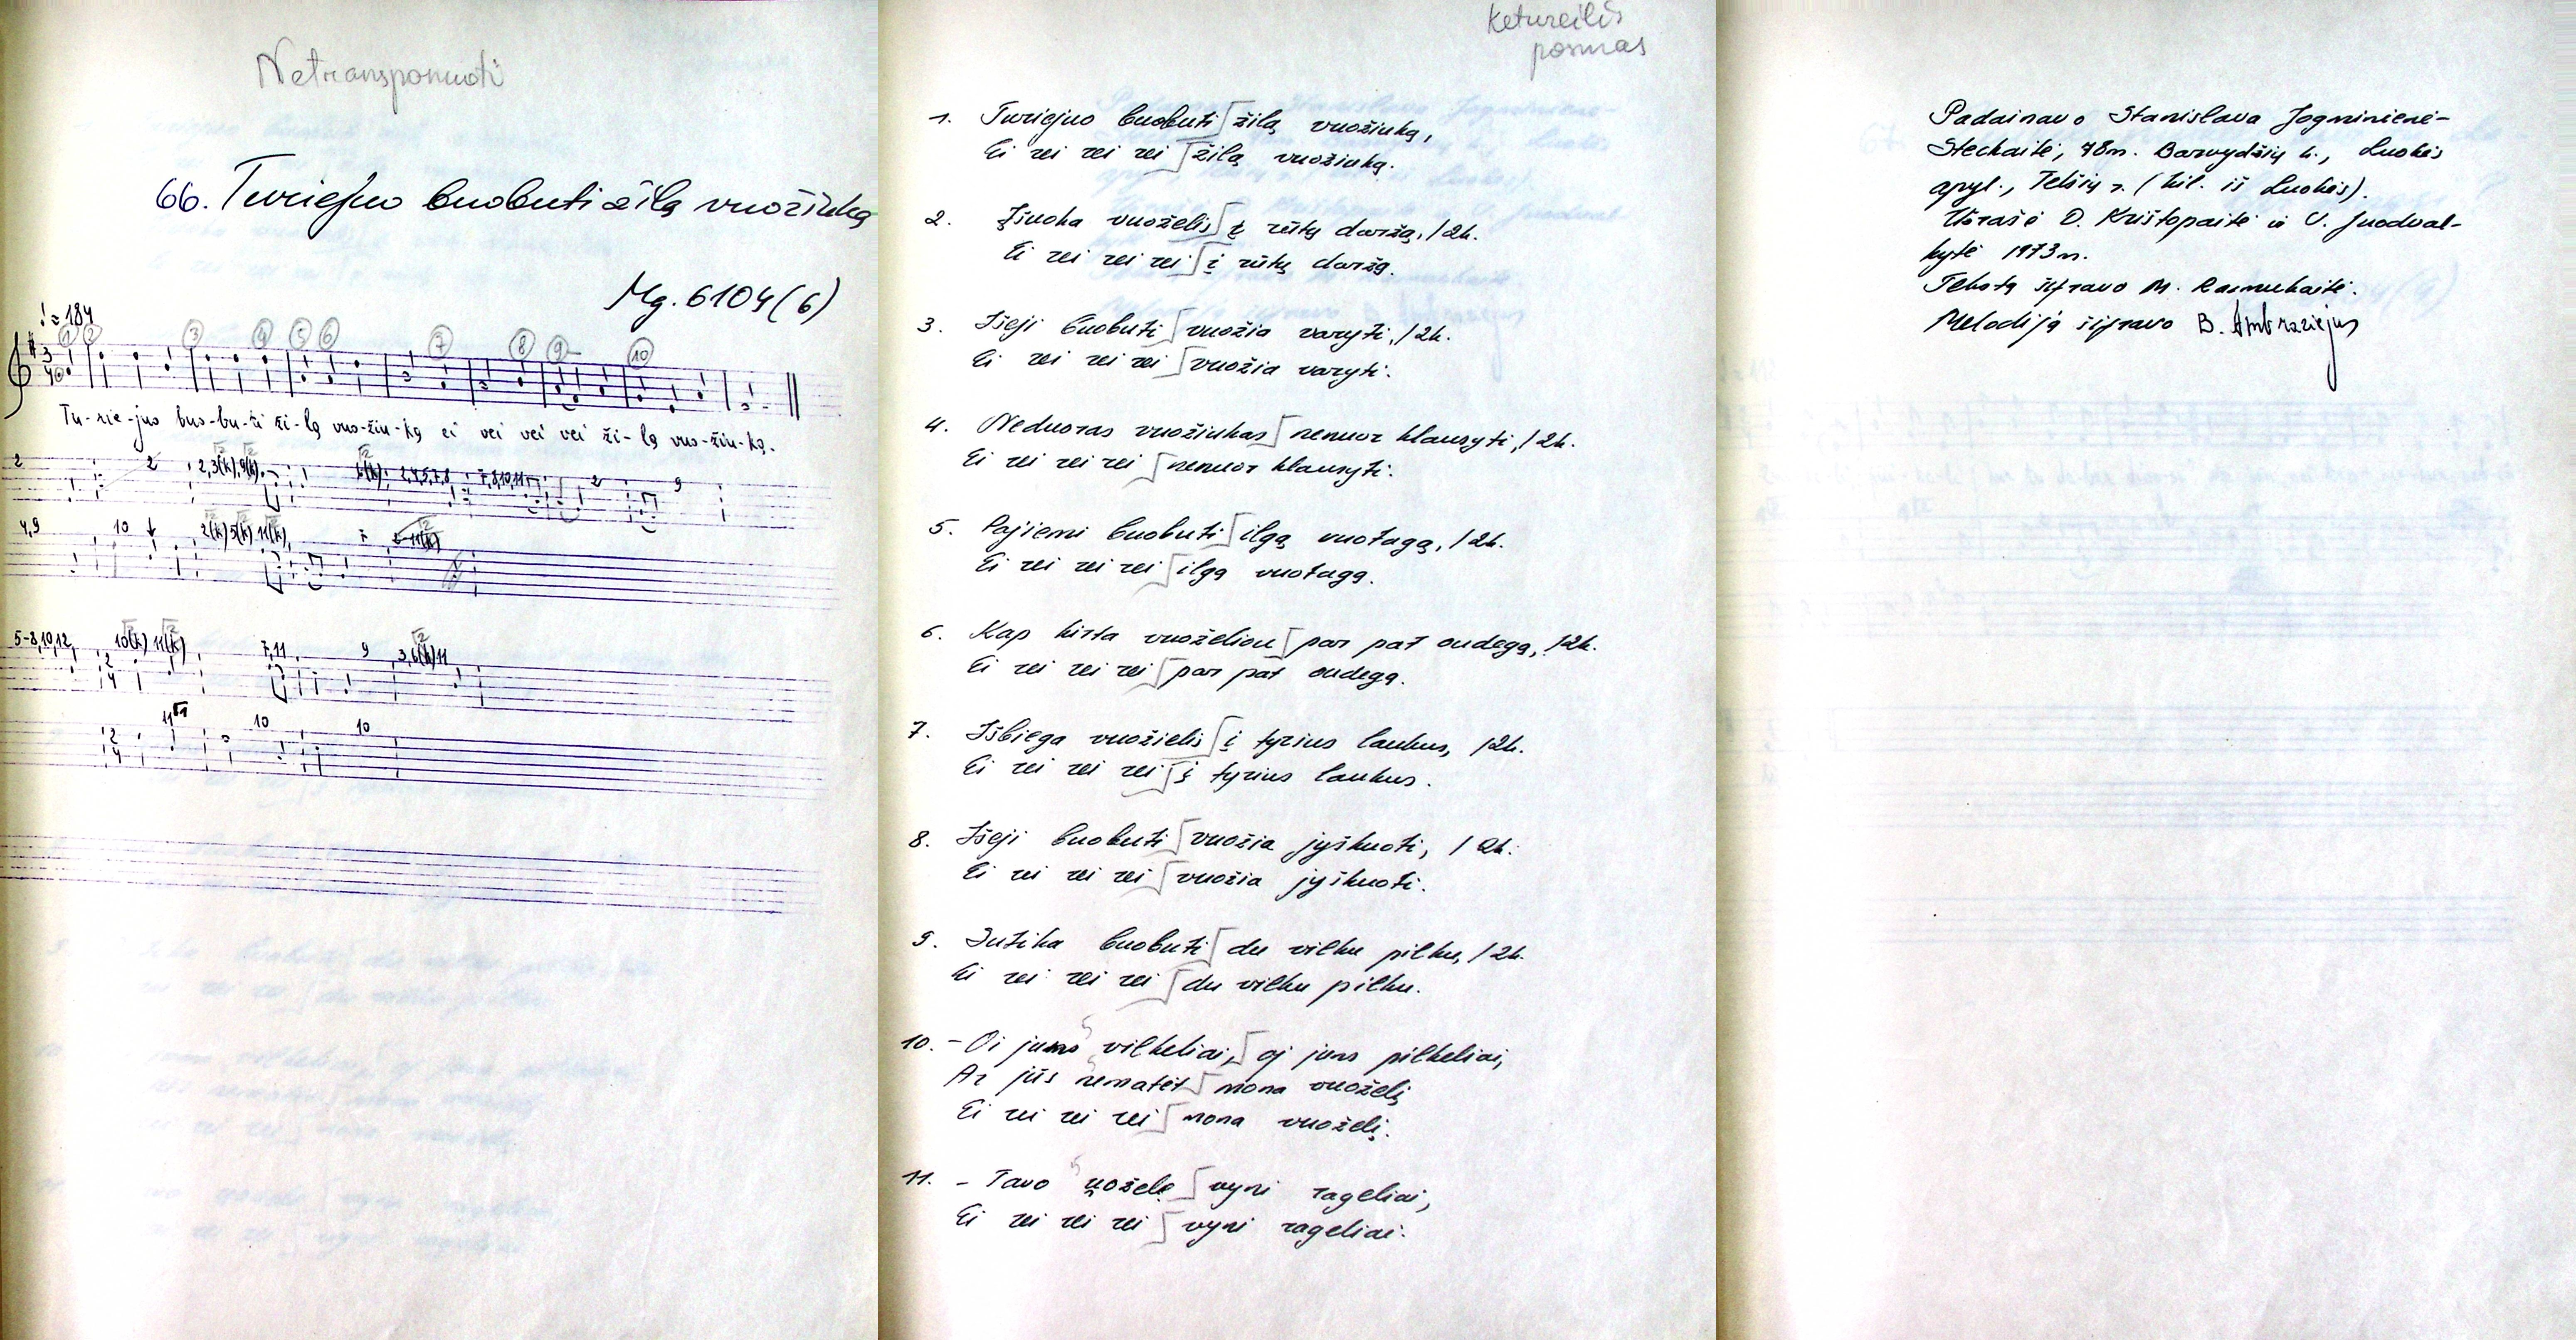 Netransponuoti
66. Turiejuo buobuti žilą vuožiuką
Mg. 6104(6)
♩ = 184
1 2 3 4 5 6 7 8 9 10
Tu-rie-juo buo-bu-ti ži-lą vuo-žiu-ką ei vei vei vei ži-lą vuo-žiu-ką.
2 2 2,3(k),9(k) 6(k) 2,4,5,7,8 7,8,10,11 2 9
4,9 10 2(k) 5(k) 11(k)
5-8,10,12 10(k) 11(k) 7,11 9 3,6(k)11
11 10 10
Ketureilis
posmas
1. Turiejuo buobuti žilą vuožiuką,
Ei vei vei vei žilą vuožiuką.
2. Įšuoka vuoželis į rūtų daržą, /2k.
Ei vei vei vei į rūtų daržą.
3. Išeji buobuti vuožia varyti, /2k.
Ei vei vei vei vuožia varyti.
4. Neduoras vuožiukas nenuor klausyti, /2k.
Ei vei vei vei nenuor klausyti.
5. Pajiemi buobuti ilgą vuotagą, /2k.
Ei vei vei vei ilgą vuotagą.
6. Kap kirta vuoželiou par pat oudegą, /2k.
Ei vei vei vei par pat oudegą.
7. Išbiega vuožielis į tyrius laukus, /2k.
Ei vei vei vei į tyrius laukus.
8. Išeji buobuti vuožia jyškuoti, /2k.
Ei vei vei vei vuožia jyškuoti.
9. Sutika buobuti du vilku pilku, /2k.
Ei vei vei vei du vilku pilku.
10. - Oi jums vilkeliai, oj jums pilkeliai,
Ar jūs nematėt mona vuoželį
Ei vei vei vei mona vuoželį.
11. - Tavo uožele vyni rageliai,
Ei vei vei vei vyni rageliai.
Padainavo Stanislava Jogminienė-
Steckaitė, 78m. Barvydžių k., Luokės
apyl., Telšių r. (kil. iš Luokės).
Užrašė D. Krištopaitė ir V. Juodval-
kytė 1973m.
Tekstą šifravo M. Razmukaitė.
Melodiją šifravo B. Ambraziejus